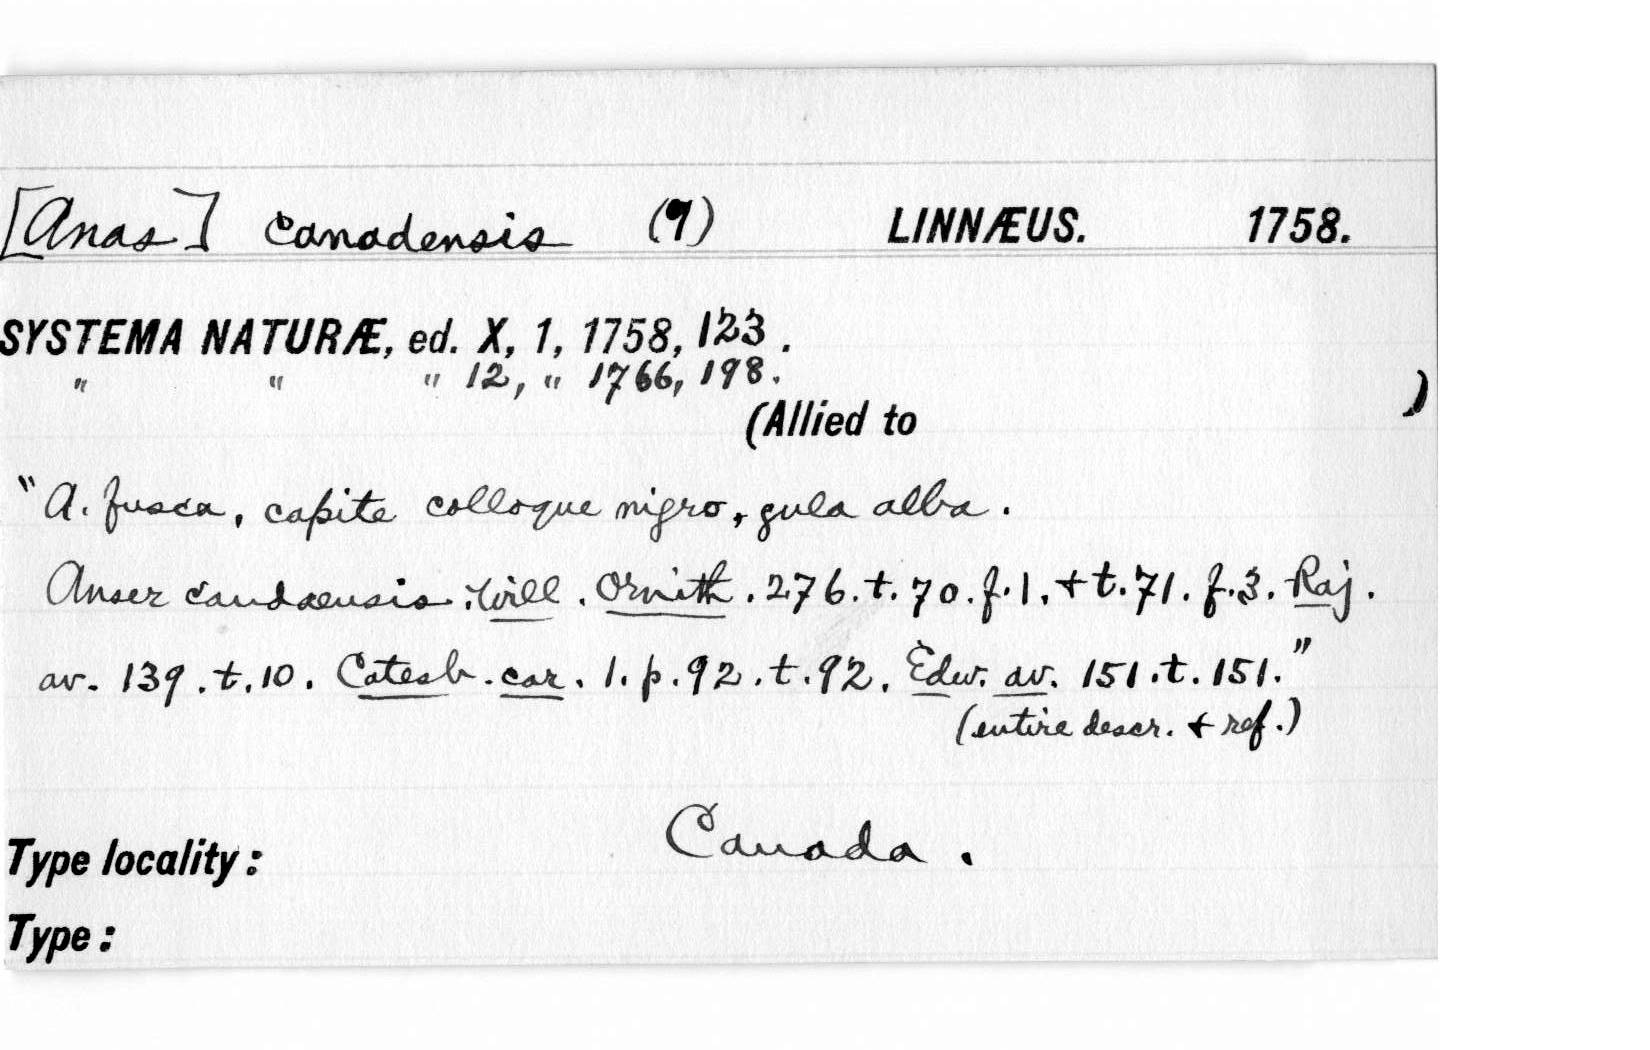 [Anas] canadensis (9) LINNÆUS. 1758.
SYSTEMA NATURÆ, ed. X, 1, 1758, 123.
" " " 12, " 1766, 198.
(Allied to )
"A. fusca, capite colloque nigro, gula alba.
Anser canadensis. Will. Ornith. 276. t. 70. f. 1. + t. 71. f. 3. Raj.
av. 139. t. 10. Catesb. car. 1. p. 92. t. 92. Edw. av. 151. t. 151."
(entire descr. + ref.)
Type locality: Canada.
Type: